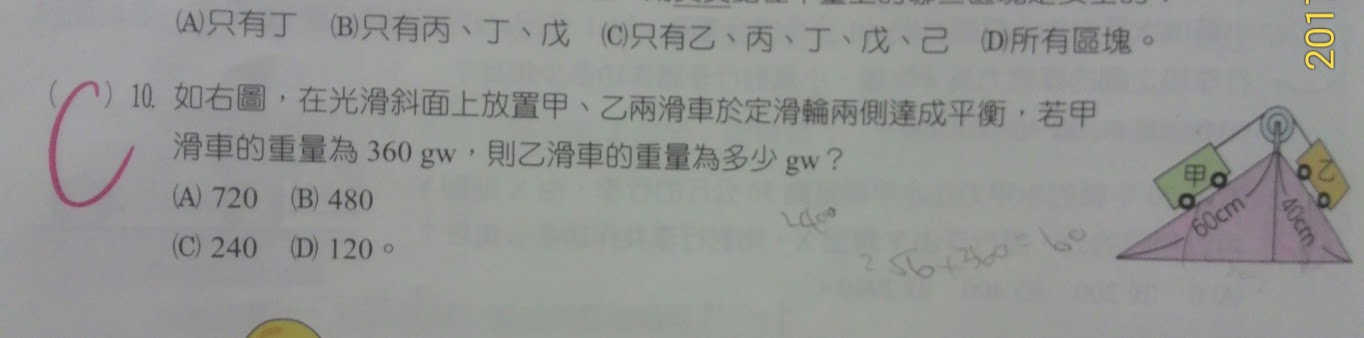 (A)只有丁 (B)只有丙、丁、戊 (C)只有乙、丙、丁、戊、己 (D)所有區塊。
C
( ) 10. 如右圖,在光滑斜面上放置甲、乙兩滑車於定滑輪兩側達成平衡,若甲
滑車的重量為 360 gw,則乙滑車的重量為多少 gw?
(A) 720 (B) 480
(C) 240 (D) 120。
甲 乙
60cm 40cm
201